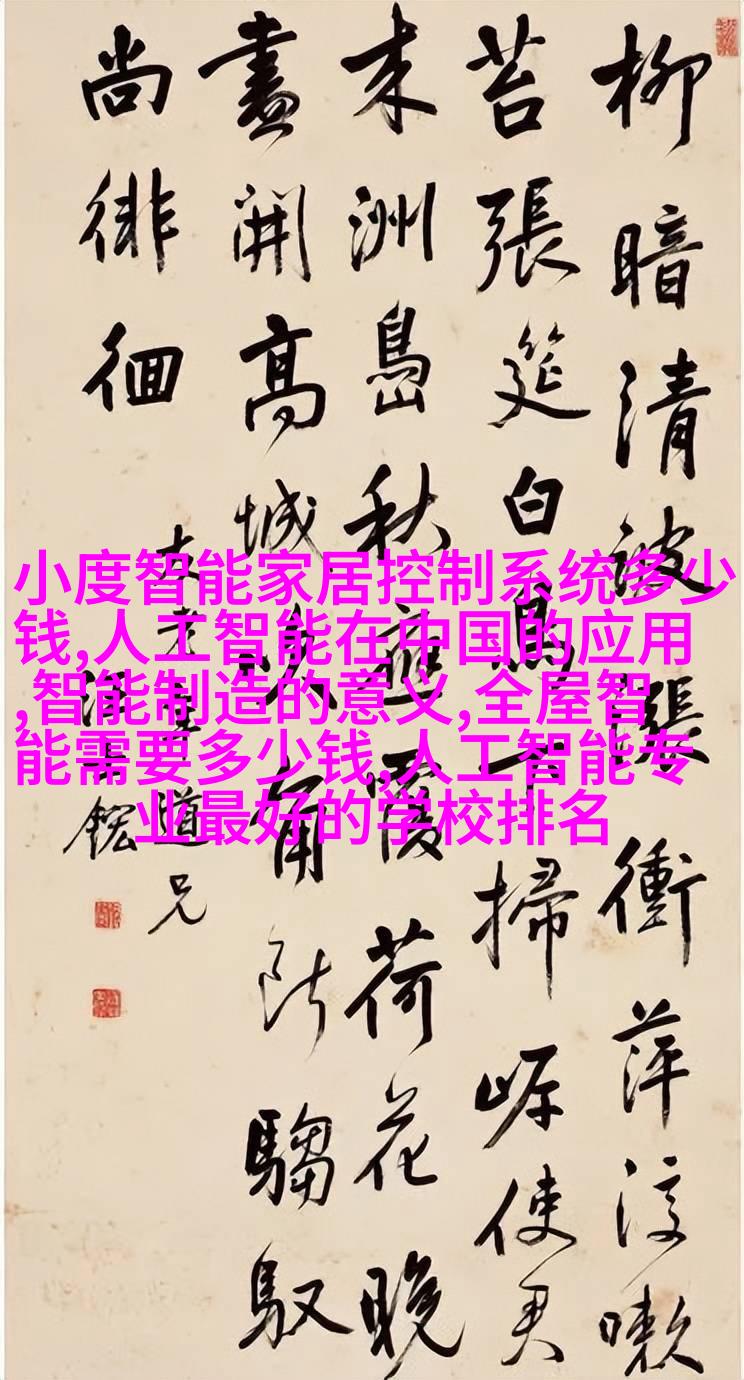 柳暗清波漲衝萍淳嗽
苔張筵白鳥下掃岸使君
来洲島秋應荷花晚
盡開高城吹角断騶馭
尚徘徊
道兄
鋐
小度智能家居控制系统多少
钱,人工智能在中国的应用
,智能制造的意义,全屋智
能需要多少钱,人工智能专
业最好的学校排名